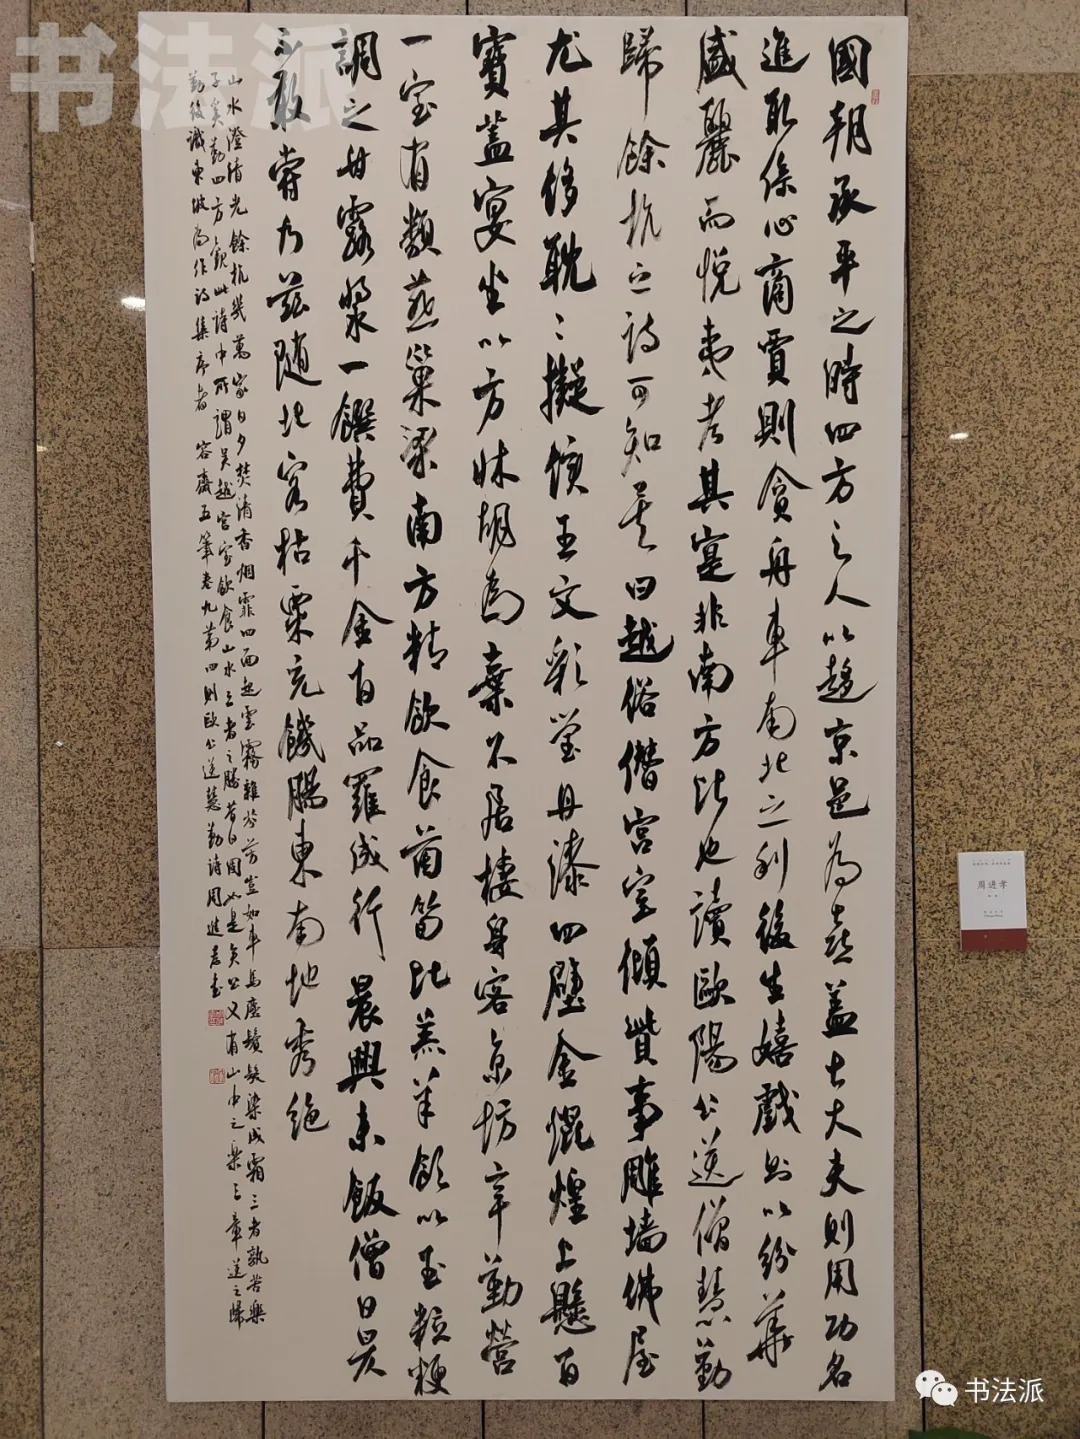 國朝承平之時四方之人以趨京邑為喜蓋士大夫則用功名
進取係心商賈則貪舟車南北之利後生嬉戲則以紛華
盛麗而悅夷考其實非南方比也讀歐陽公送僧慧勤
歸餘杭之詩可知矣曰越俗僭宮室傾貲事雕墻佛屋
尤其侈耽耽擬侯王文彩瑩丹漆四壁金焜煌上懸百
寶蓋宴坐以方牀胡為棄不居棲身客京坊辛勤營
一室有類燕巢梁南方精飲食菌筍比羔羊飯以玉粒粳
調之甘露漿一饌費千金百品羅成行晨興未飯僧日昃
不敢嘗乃茲隨北客枯粟充饑腸東南地秀絕
山水澄清光餘杭幾萬家日夕焚清香烟霏四面起雲霧雜芬芳豈如車馬塵鬢髮染成霜三者孰苦樂
子奚勤四方觀此詩中所謂吳越宮室飲食山水三者之勝昔日固如是矣公又有山中之樂三章送之歸
勤後識東坡為作詩集序者 容齋五筆卷九第四則歐公送慧勤詩周進孝書
周進孝
书法派
书法派